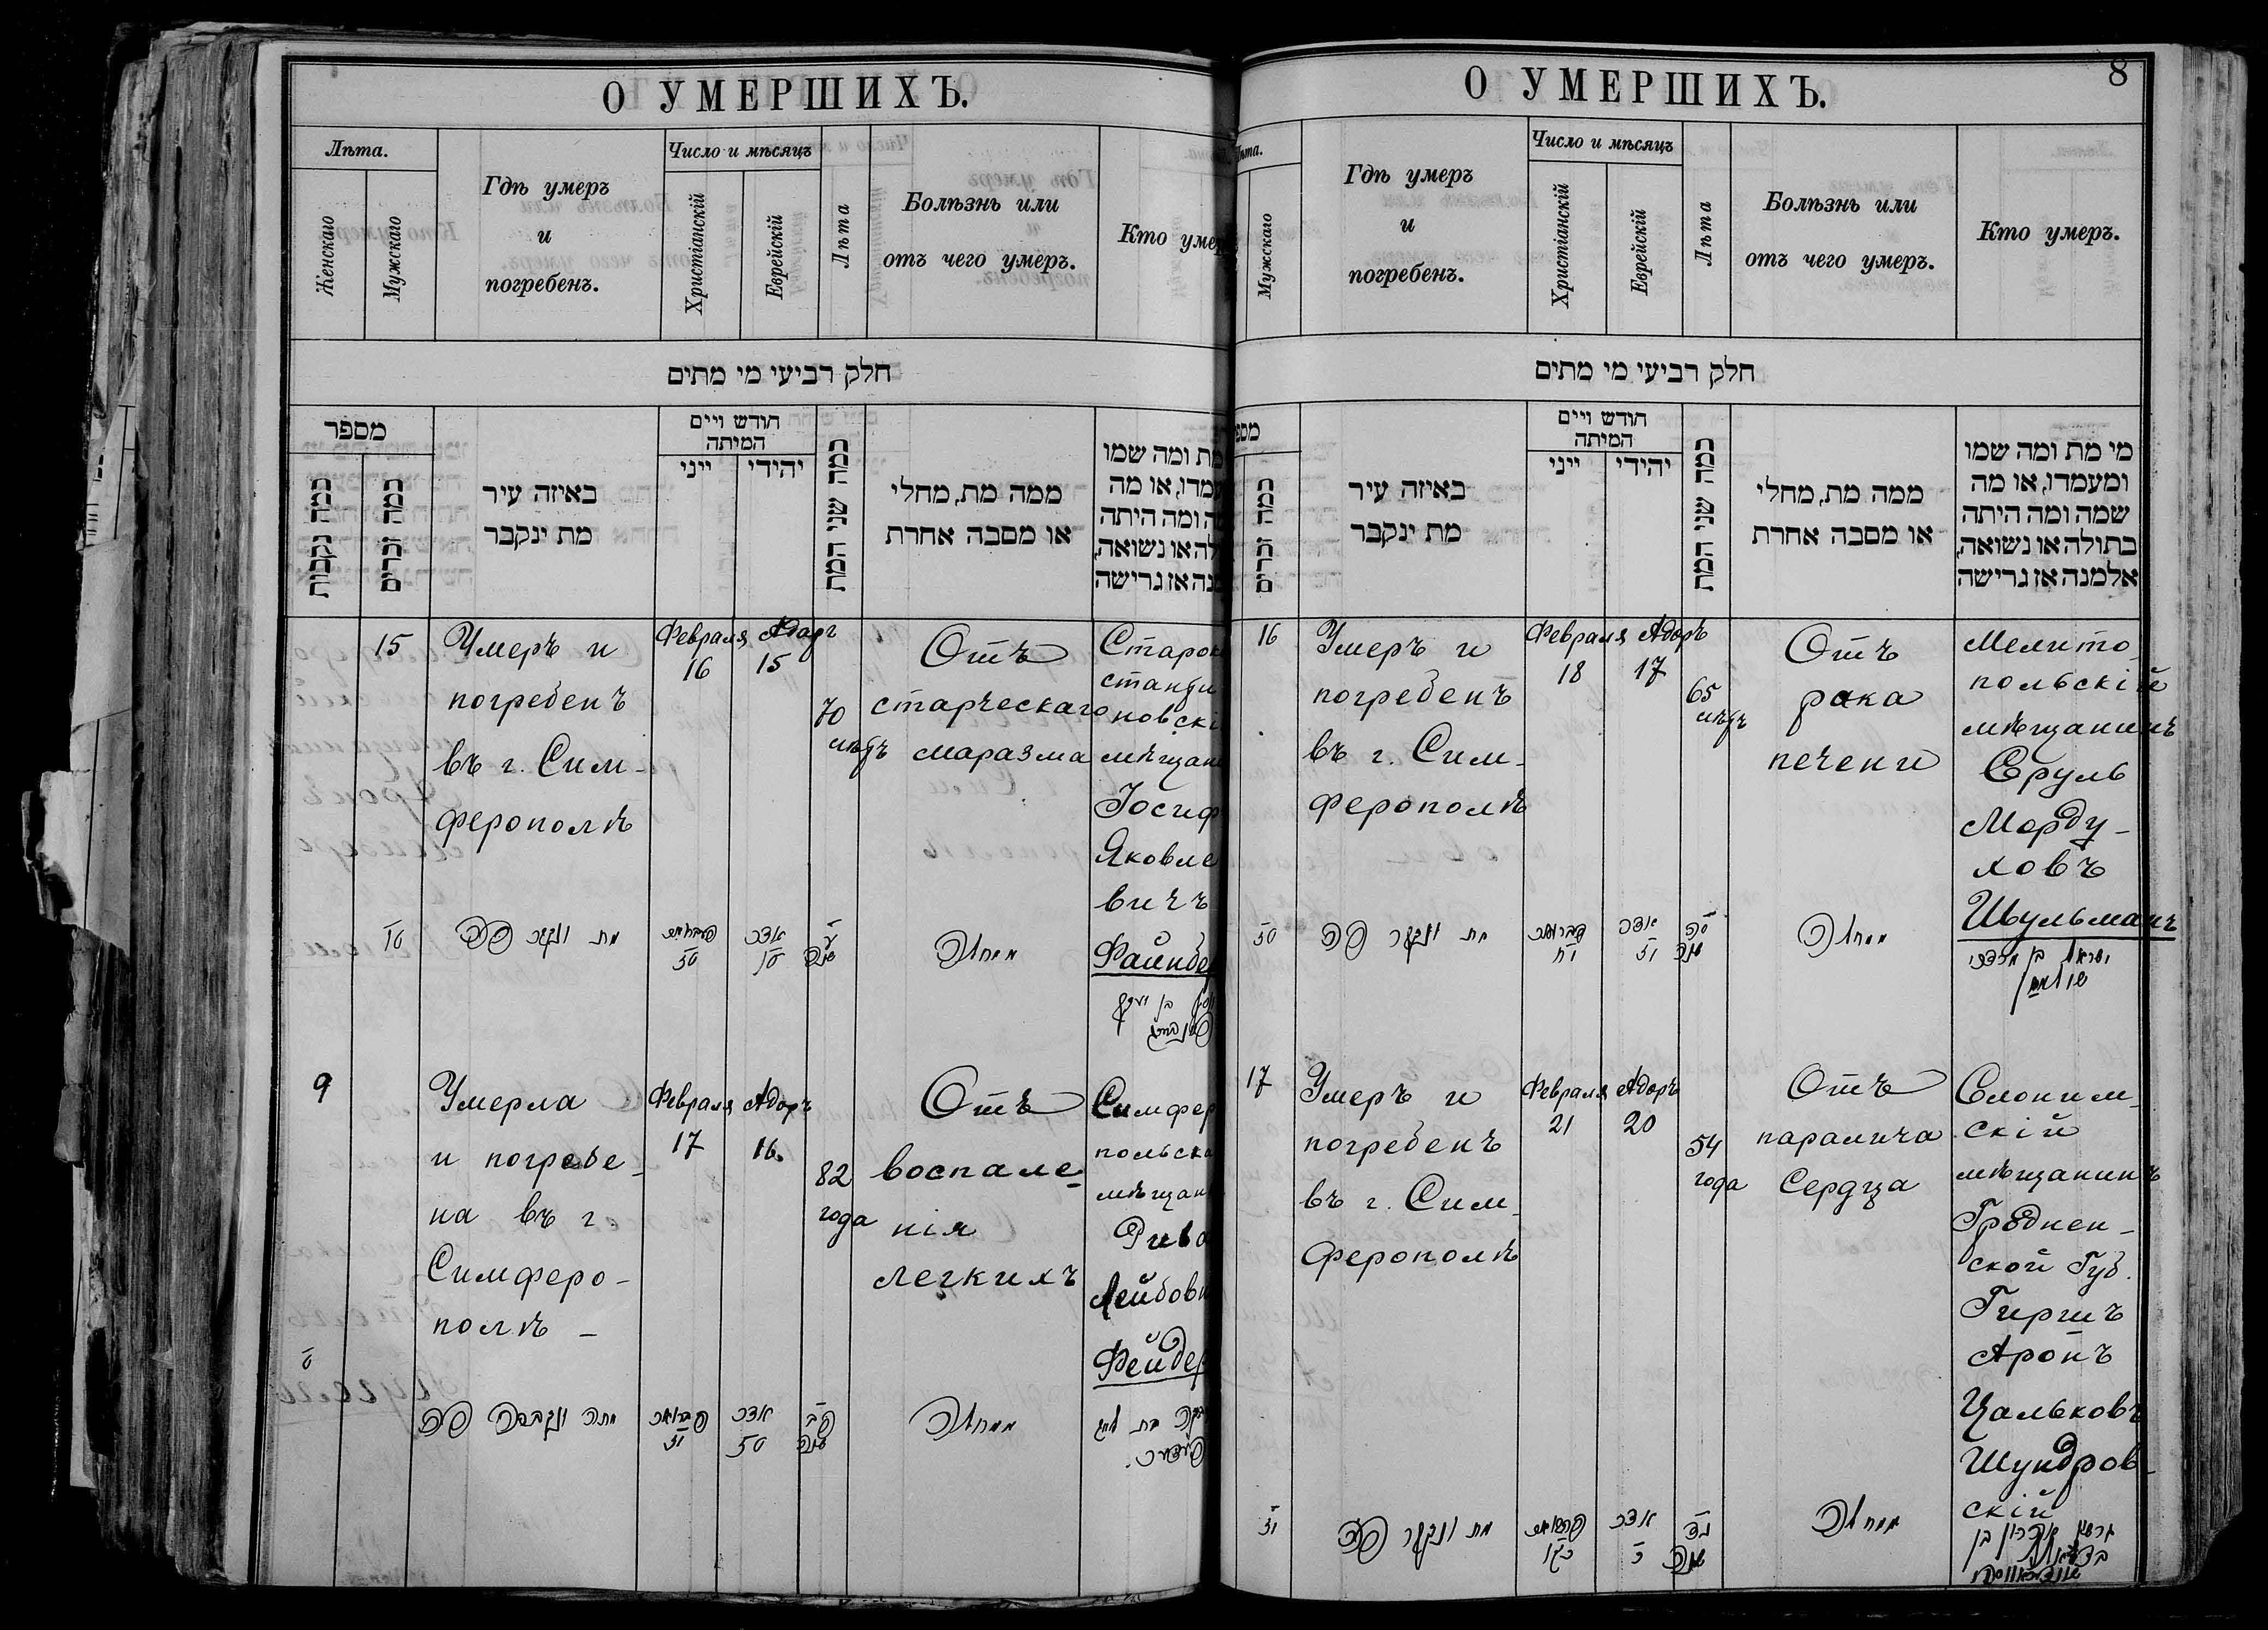 О УМЕРШИХЪ.
Лѣта.
Женскаго
Мужскаго
Гдѣ умеръ
и
погребенъ.
Число и мѣсяцъ
Христіанскій
Еврейскій
Лѣта
Болѣзнь или
отъ чего умеръ.
Кто умер
חלק רביעי מי מתים
מספר
כמה נקבות
כמה זכרים
באיזה עיר
מת ינקבר
חודש ויים
המיתה
ייני
יהידי
כמה שני המת
ממה מת, מחלי
או מסבה אחרת
מת ומה שמו
עמדו, או מה
ה ומה היתה
לה או נשואה,
נה אז גרישה
15
Умеръ и
погребенъ
въ г. Сим-
ферополѣ
Февраля
16
Адаръ
15
70
лѣтъ
Отъ
старческаго
маразма
Староко
станти
новскі
мѣщан
Іосиф
Яковле
вичъ
Файнбе
מת ונקבר
אדר
שנה
9
Умерла
и погребе-
на въ г.
Симферо-
полѣ -
Февраля
17
Адаръ
16.
82
года
Отъ
воспале-
нія
легкихъ
Симфер
польска
мѣщан
Рива
Лейбов
Фейдер
מתה ונקברה
פברואר
אדר
שנה
О УМЕРШИХЪ.
8
ѣта.
Мужскаго
Гдѣ умеръ
и
погребенъ.
Число и мѣсяцъ
Христіанскій
Еврейскій
Лѣта
Болѣзнь или
отъ чего умеръ.
Кто умеръ.
חלק רביעי מי מתים
מספ
כמה זכרים
באיזה עיר
מת ינקבר
חודש ויים
המיתה
ייני
יהידי
כמה שני המת
ממה מת, מחלי
או מסבה אחרת
מי מת ומה שמו
ומעמדו, או מה
שמה ומה היתה
בתולה או נשואה,
אלמנה אז גרישה
16
Умеръ и
погребенъ
въ г. Сим-
ферополѣ
Февраля
18
Адаръ
17
65
лѣтъ
Отъ
рака
печени
Мелито-
польскій
мѣщанинъ
Сруль
Морду-
ховъ
Шульманъ
מת ונקבר
פברואר
אדר
שנה
ישראל בן מרדכי
שולמאן
17
Умеръ и
погребенъ
въ г. Сим-
ферополѣ
Февраля
21
Адаръ
20
54
года
Отъ
паралича
Сердца
Слоним-
скій
мѣщанинъ
Гроднен-
ской Губ.
Гиршъ
Аронъ
Цальковъ
Шундров-
скій
מת ונקבר
אדר
שנה